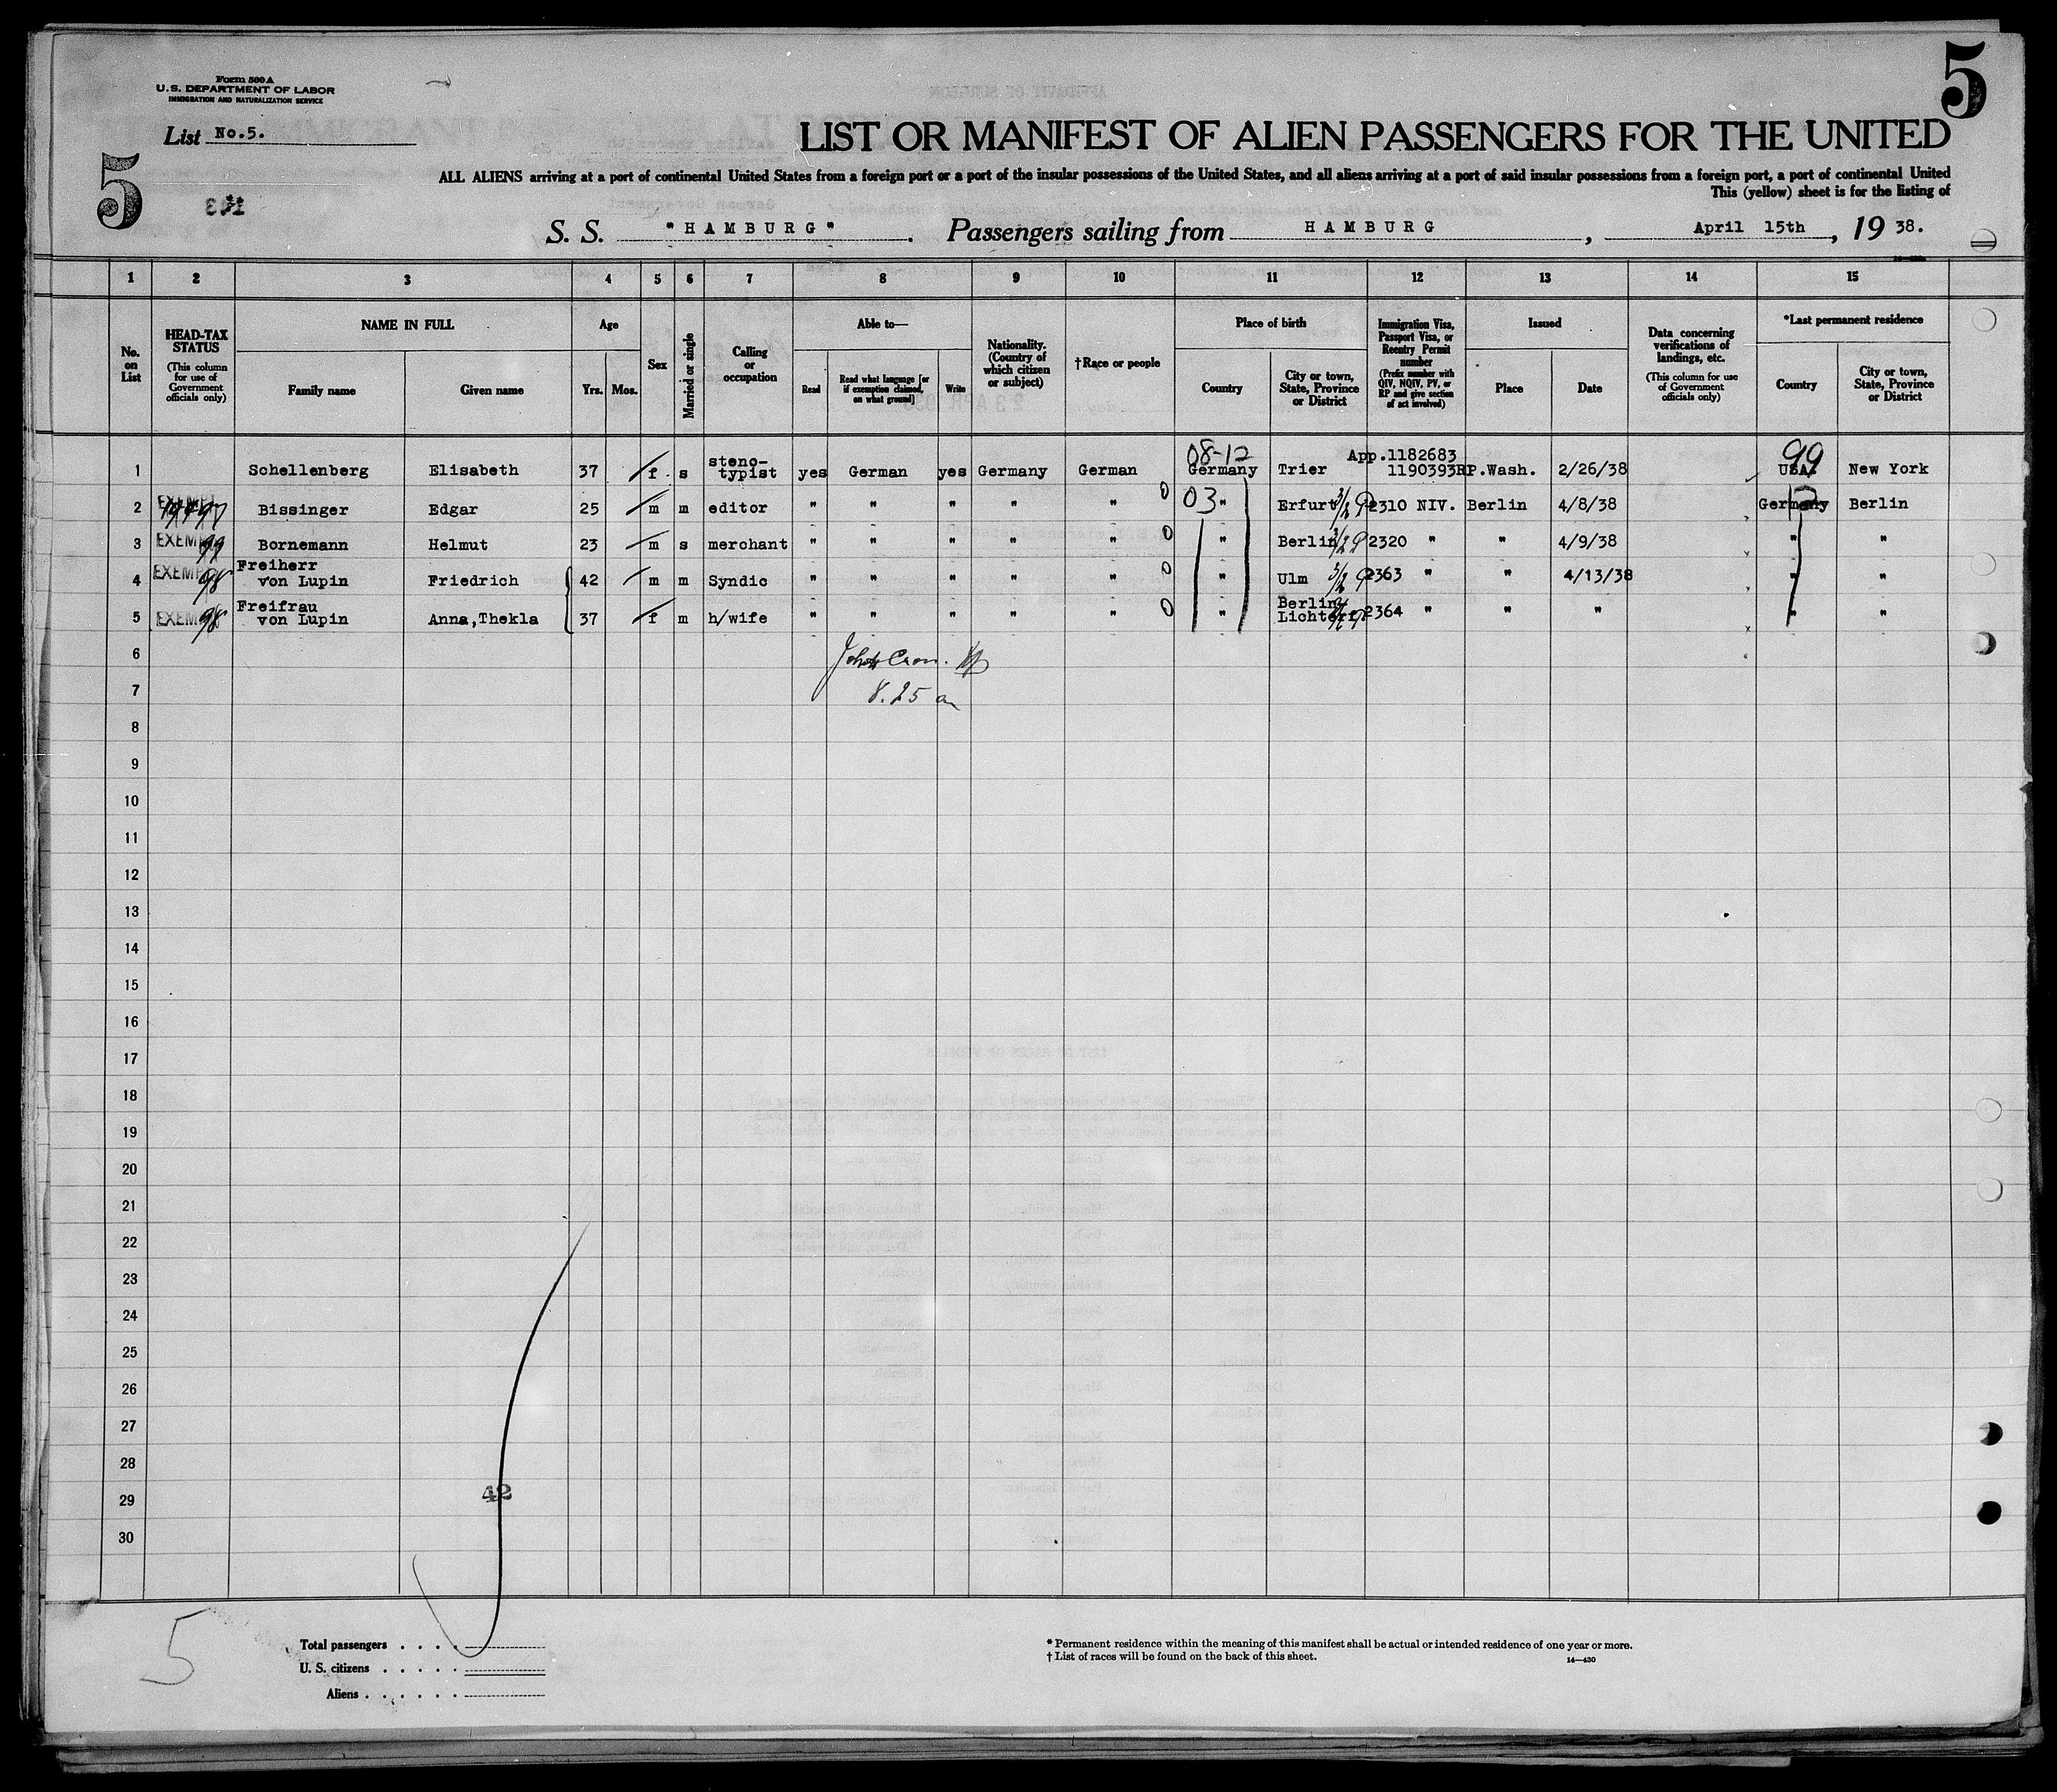 5
Form 500 A
U. S. DEPARTMENT OF LABOR
IMMIGRATION AND NATURALIZATION SERVICE
List No.5.
LIST OR MANIFEST OF ALIEN PASSENGERS FOR THE UNITED
5
ALL ALIENS arriving at a port of continental United States from a foreign port or a port of the insular possessions of the United States, and all aliens arriving at a port of said insular possessions from a foreign port, a port of continental United
This (yellow) sheet is for the listing of
S. S. "HAMBURG". Passengers sailing from HAMBURG, April 15th, 19 38.
1 2 3 4 5 6 7 8 9 10 11 12 13 14 15
No. on List
HEAD-TAX STATUS
(This column for use of Government officials only)
NAME IN FULL
Family name
Given name
Age
Yrs.
Mos.
Sex
Married or single
Calling or occupation
Able to—
Read
Read what language [or if exemption claimed, on what ground]
Write
Nationality. (Country of which citizen or subject)
†Race or people
Place of birth
Country
City or town, State, Province or District
Immigration Visa, Passport Visa, or Reentry Permit number
(Prefix number with QIV, NQIV, PV, or RP and give section of act involved)
Issued
Place
Date
Data concerning verifications of landings, etc.
(This column for use of Government officials only)
*Last permanent residence
Country
City or town, State, Province or District
08-12 App.1182683 99
1 Schellenberg Elisabeth 37 f s steno-typist yes German yes Germany German Germany Trier 1190393RP. Wash. 2/26/38 USA. New York
2 Bissinger Edgar 25 m m editor " " " " " 03 " Erfurt 2310 NIV. Berlin 4/8/38 Germany Berlin
3 EXEMPT 99 Bornemann Helmut 23 m s merchant " " " " " " Berlin 2320 " " 4/9/38 " "
4 EXEMPT 98 Freiherr von Lupin Friedrich 42 m m Syndic " " " " " " Ulm 2363 " " 4/13/38 " "
5 EXEMPT 98 Freifrau von Lupin Anna,Thekla 37 f m h/wife " " " " " " Berlin Lichterf. 2364 " " " " "
6
7 8.25 am
8
9
10
11
12
13
14
15
16
17
18
19
20
21
22
23
24
25
26
27
28
29 42
30
5
Total passengers . . . .
U. S. citizens . . . . .
Aliens . . . . . .
* Permanent residence within the meaning of this manifest shall be actual or intended residence of one year or more.
† List of races will be found on the back of this sheet.
14—430